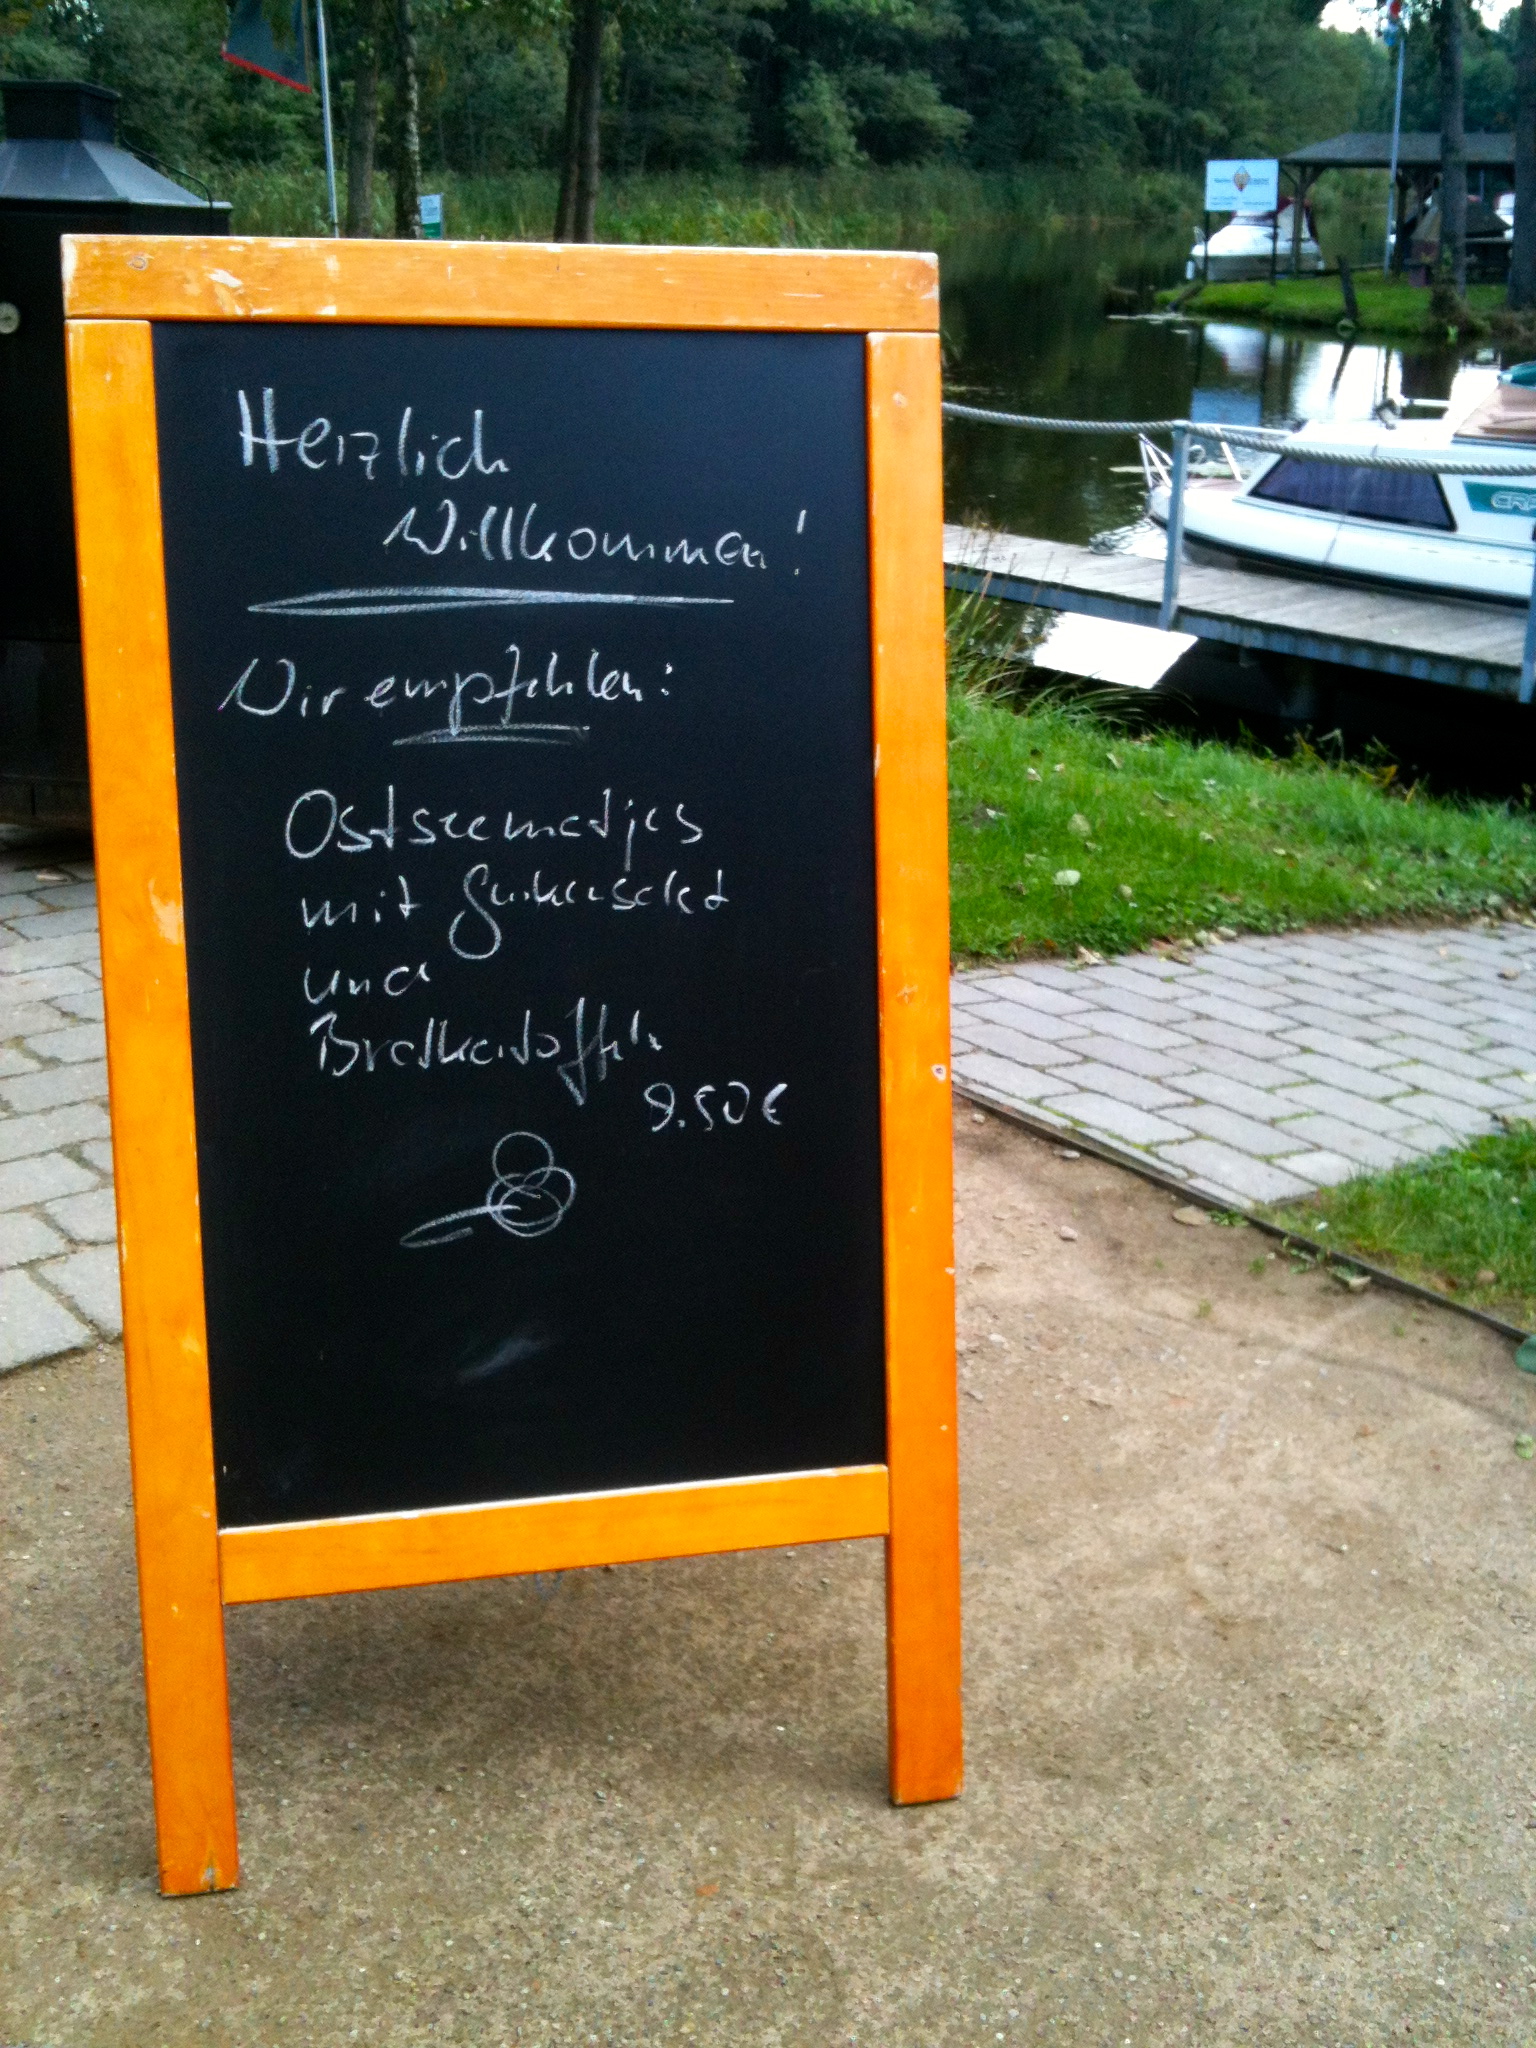 Herzlich
Willkommen!
Wir empfehlen:
Ostseematjes
mit Gurkensalat
und
Bratkartoffeln
9.50€